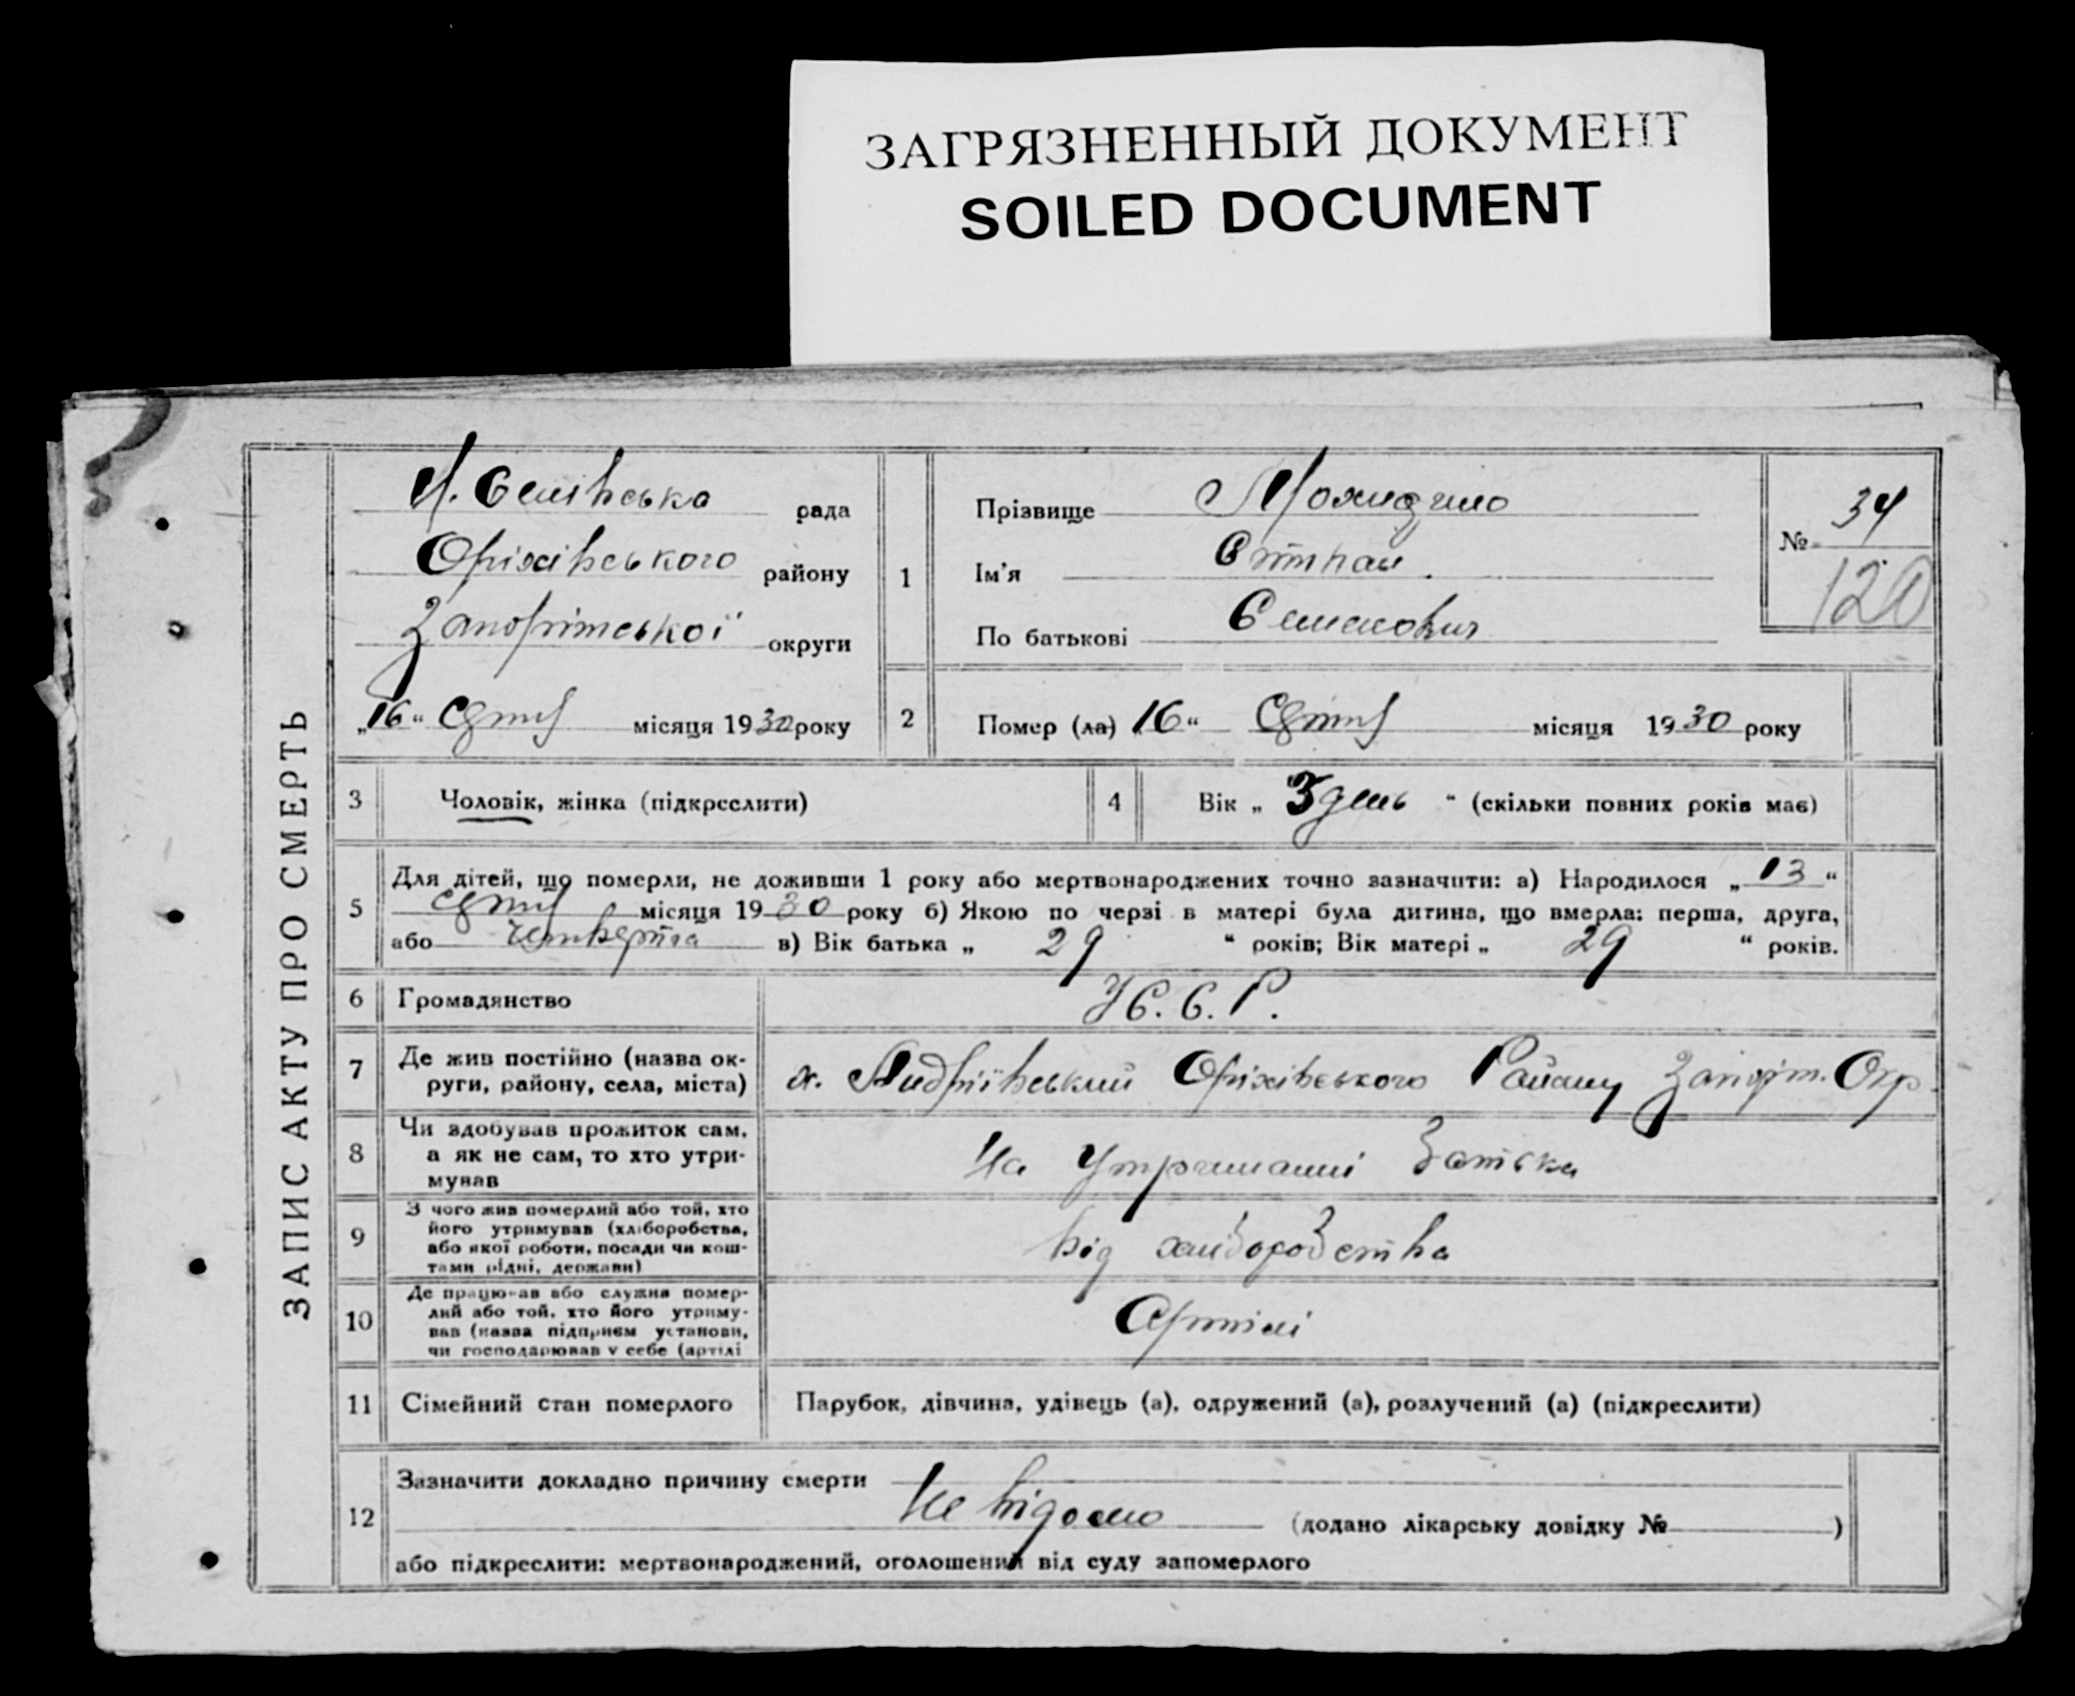 ЗАГРЯЗНЕННЫЙ ДОКУМЕНТ
SOILED DOCUMENT
ЗАПИС АКТУ ПРО СМЕРТЬ
рада
Оріхівського району
Запоріжської округи
„16“ Січня місяця 1930 року
1
Прізвище
Ім'я Степан
По батькові Семенович
№ 34
120
2
Помер (ла) 16“ Січня місяця 1930 року
3
Чоловік, жінка (підкреслити)
4
Вік „ 3 день “ (скільки повних років має)
5
Для дітей, що померли, не доживши 1 року або мертвонароджених точно зазначити: а) Народилося „13“
Січня місяця 1930 року б) Якою по черзі в матері була дитина, що вмерла: перша, друга,
або четверта в) Вік батька „ 29 “ років; Вік матері „ 29 “ років.
6
Громадянство
У.С.С.Р.
7
Де жив постійно (назва ок-
руги, району, села, міста)
х. Андріївський Оріхівського Району Запоріж. Окр.
8
Чи здобував прожиток сам,
а як не сам, то хто утри-
мував
На утриманні батька
9
З чого жив померлий або той, хто
його утримував (хліборобства,
або якої роботи, посади чи кош-
тами рідні, держави)
від хліборобства
10
Де працював або служив помер-
лий або той, хто його утриму-
вав (назва підприєм установи,
чи господарював у себе (артілі
Артілі
11
Сімейний стан померлого
Парубок, дівчина, удівець (а), одружений (а), розлучений (а) (підкреслити)
12
Зазначити докладно причину смерти
Не відомо (додано лікарську довідку № )
або підкреслити: мертвонароджений, оголошений від суду запомерлого